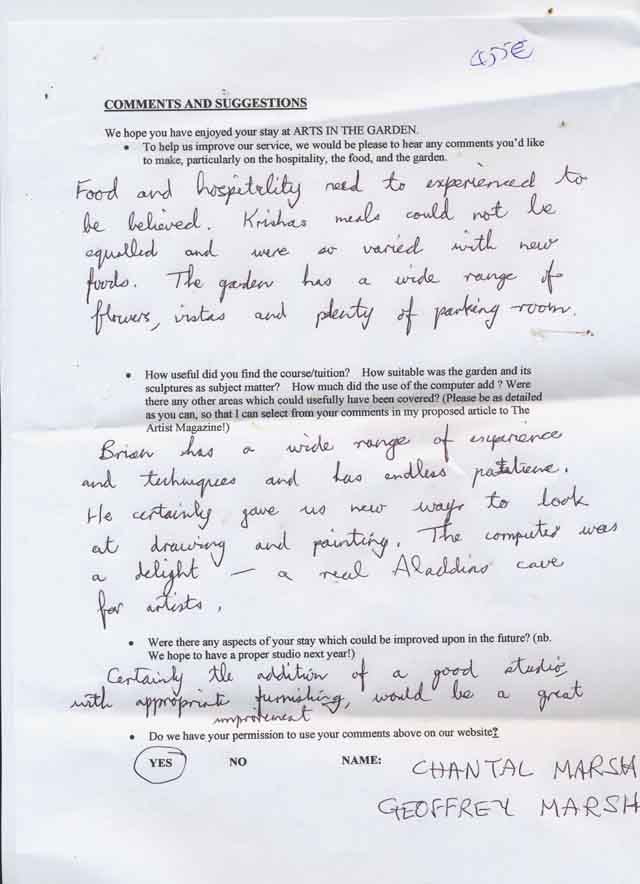 COMMENTS AND SUGGESTIONS
We hope you have enjoyed your stay at ARTS IN THE GARDEN.
• To help us improve our service, we would be pleased to hear any comments you'd like
to make, particularly on the hospitality, the food, and the garden.
Food and hospitality need to experienced to
be believed. Krishas meals could not be
equalled and were so varied with new
foods. The garden has a wide range of
flowers, vistas and plenty of parking room.
• How useful did you find the course/tuition? How suitable was the garden and its
sculptures as subject matter? How much did the use of the computer add ? Were
there any other areas which could usefully have been covered? (Please be as detailed
as you can, so that I can select from your comments in my proposed article to The
Artist Magazine!)
Brian has a wide range of experience
and techniques and has endless patience.
He certainly gave us new ways to look
at drawing and painting. The computer was
a delight — a real Aladdins cave
for artists.
• Were there any aspects of your stay which could be improved upon in the future? (nb.
We hope to have a proper studio next year!)
Certainly the addition of a good studio
with appropriate furnishing, would be a great
improvement
• Do we have your permission to use your comments above on our website?
YES NO NAME: CHANTAL MARSH
GEOFFREY MARSH